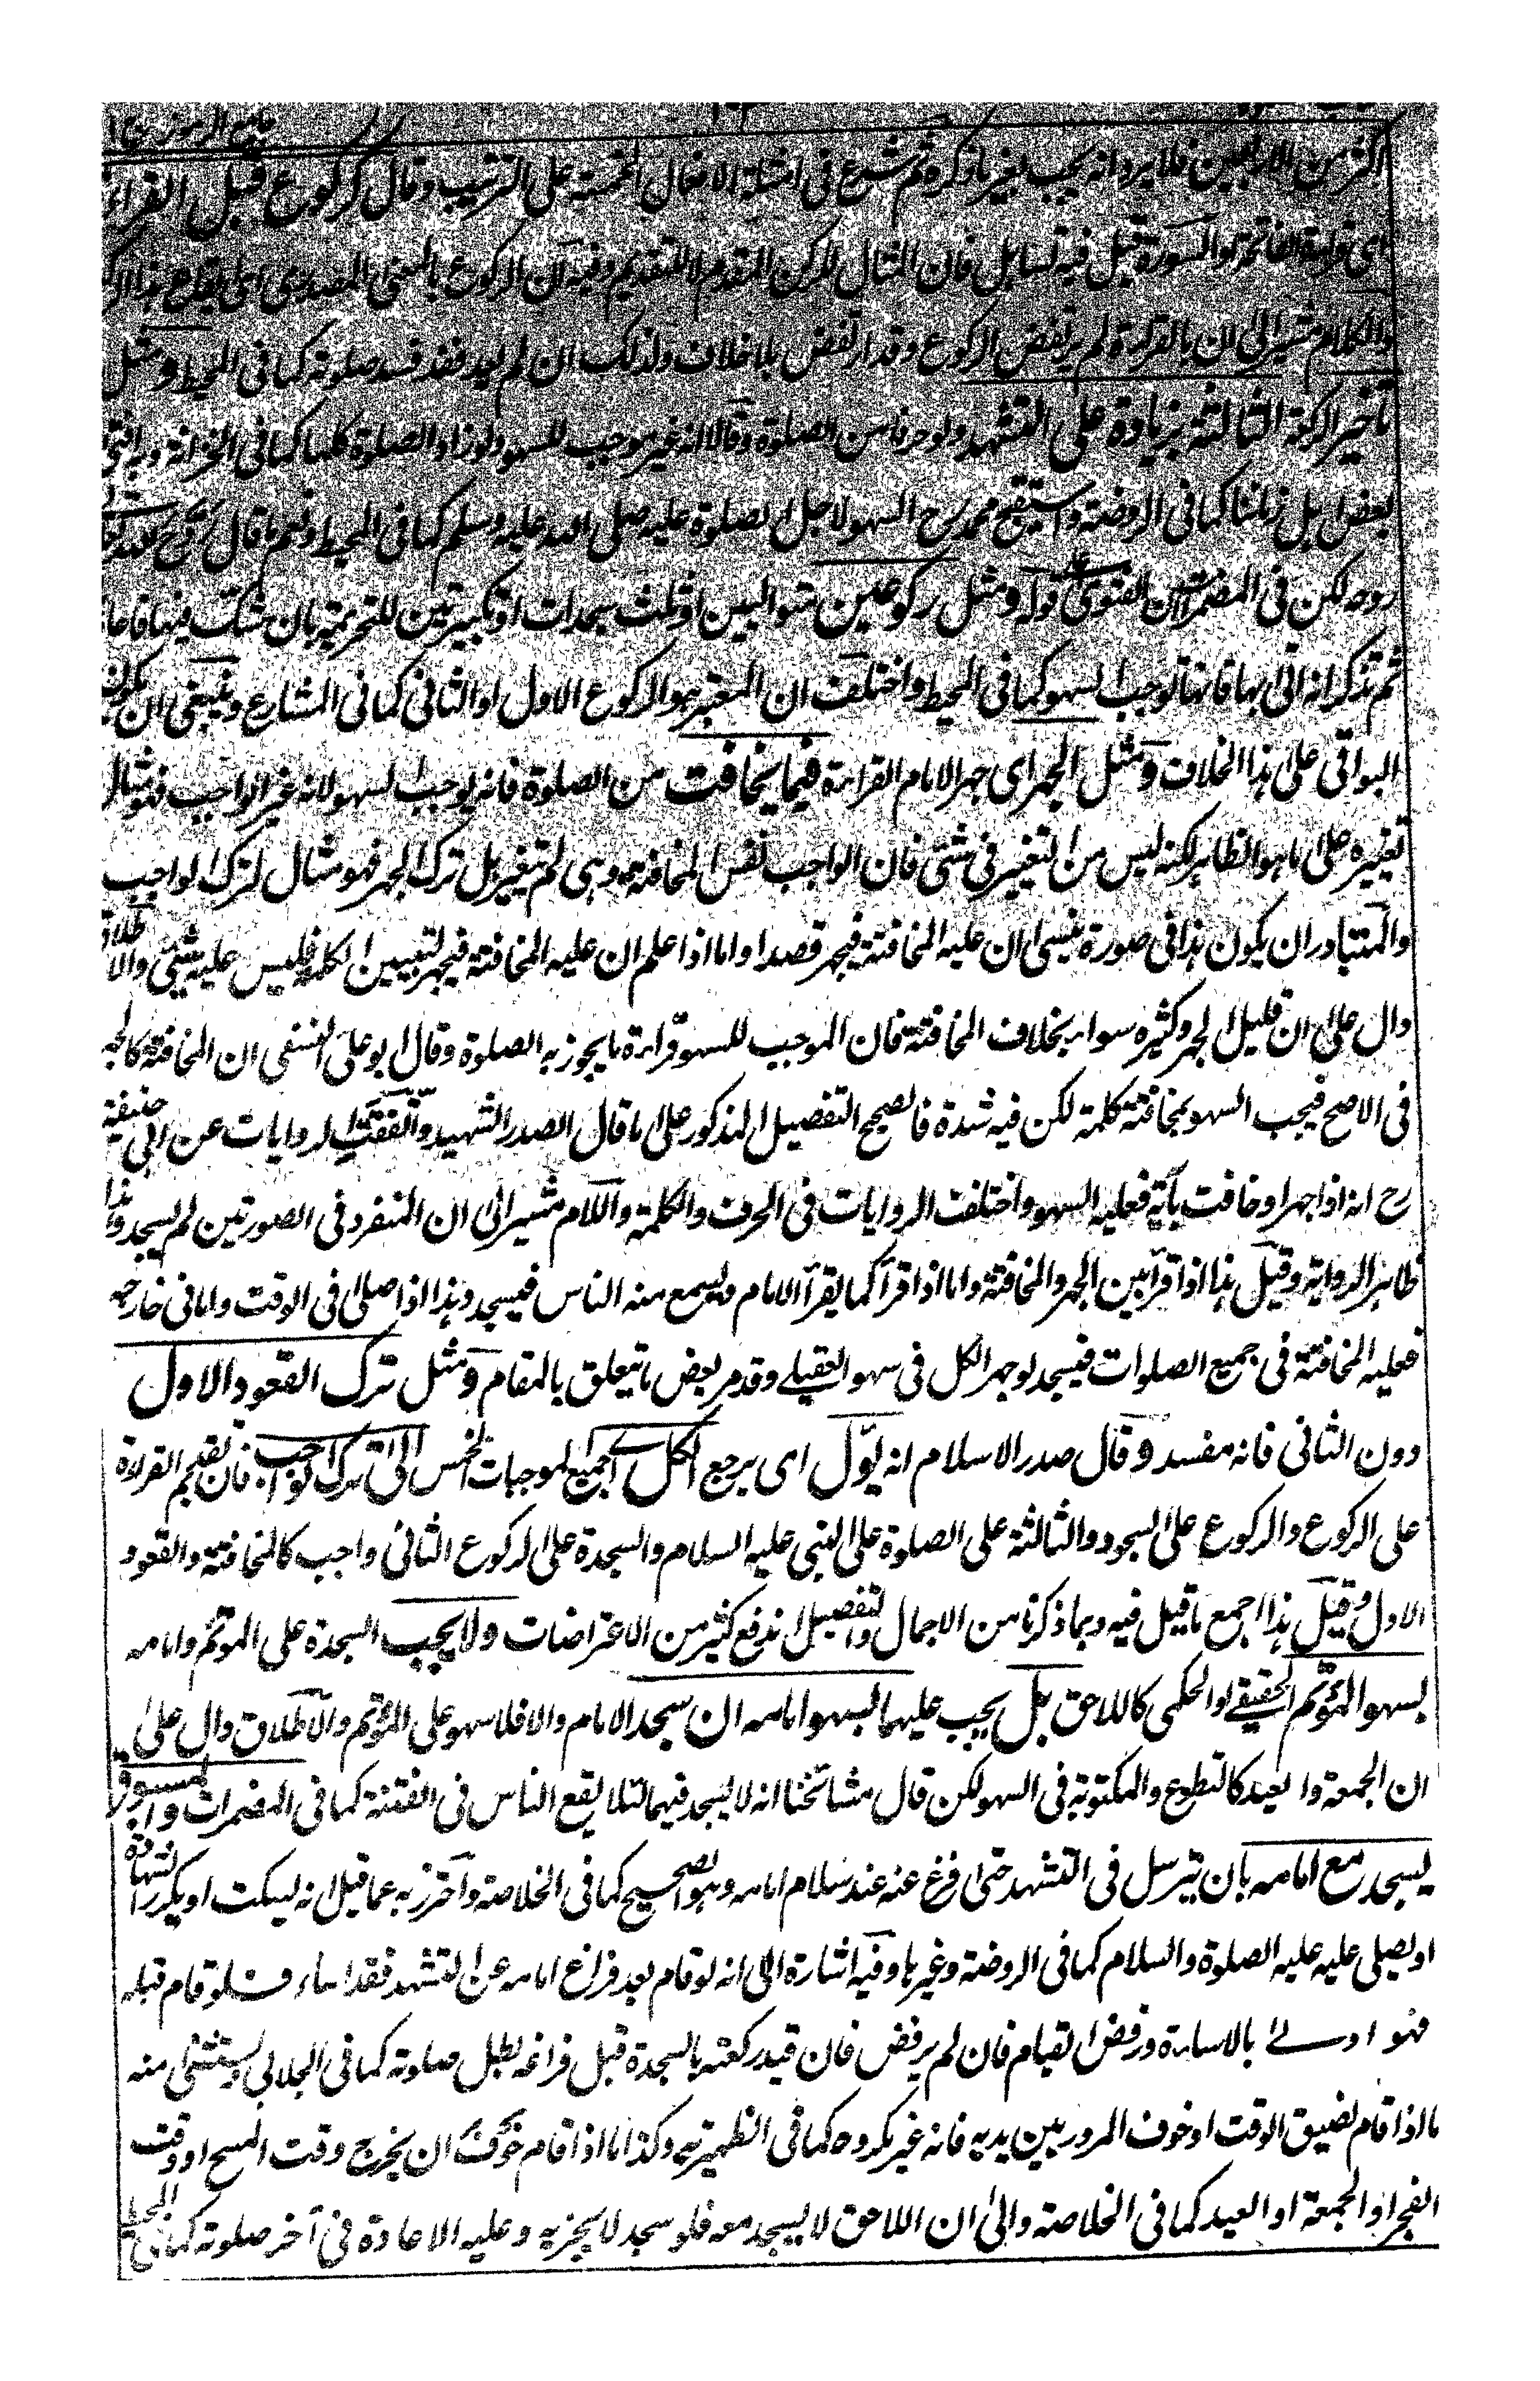 جامع الرموز ج ١
اكثر من الاربعين فلا يرد انه يجب بغير ما ذكره ثم شرع فى امثلة الافعال الخمسة على الترتيب وقال كركوع قبل القراءة
اى قراءة الفاتحة والسورة قيل فيه تساهل فان المثال للركن المقدم لا للتقديم وفيه ان الركوع بالمعنى المصدرى
والكلام مشير الى ان بالقراءة لم يرتفض الركوع وقد ارتفض بلا خلاف ولذلك ان لم يعد فقد فسد صلوته كما فى المحيط ومثل
تاخير الركعة الثالثة بزيادة على التشهد ولو حرفا من الصلوة وقالا انه غير موجب للسهو ولو زاد الصلوة كلها كما فى الخزانة وبه افتى
بعض اهل زماننا كما فى الروضة واستقبح محمد رح السهو لاجل الصلوة عليه صلى الله عليه وسلم كما فى المحيط ونعم ما قال
روحه لكن فى المضمرات ان الفتوى على قوله ومثل ركوعين متواليين او ثلث سجدات او تكبيرتين للتحريمة بان شك فيها فاعاد
ثم تذكر انه اتى بها فانها توجب السهو كما فى المحيط واختلف ان المعتبر هو الركوع الاول او الثانى كما فى المشارع وينبغى ان يكون
البواقى على هذا الخلاف ومثل الجهر اى جهر الامام القراءة فيما يخافت من الصلوة فانه يوجب السهو لانه غير الواجب فهو مثال
تغييره على ما هو الظاهر لكنه ليس من التغيير فى شئ فان الواجب نفس المخافتة وهى لم تغير بل ترك الجهر فهو مثال لترك الواجب
والمتبادر ان يكون هذا فى صورة ينسى ان عليه المخافتة فيجهر قصدا واما اذا علم ان عليه المخافتة فيجهر لتبيين الكلمة فليس عليه شئ والاطلاق
دال على ان قليل الجهر وكثيره سواء بخلاف المخافتة فان الموجب للسهو قراءة ما يجوز به الصلوة وقال ابو على النسفى ان المخافتة كالجهر
فى الاصح فيجب السهو بمخافتة كلمة لكن فيه شدة فالصحيح التفصيل المذكور على ما قال الصدر الشهيد واتفقت الروايات عن ابى حنيفة
رح انه اذا جهر او خافت بآية فعليه السهو واختلفت الروايات فى الحرف والكلمة والكلام مشير الى ان المنفرد فى الصورتين لم يسجد وهذا
ظاهر الرواية وقيل هذا اذا قرأ بين الجهر والمخافتة واما اذا قرأ كما يقرأ الامام ويسمع منه الناس فيسجد وهذا اذا صلى فى الوقت واما فى خارجه
فعليه المخافتة فى جميع الصلوات فيسجد لو جهر الكل فى سهو العقيلے وقد مر بعض ما يتعلق بالمقام ومثل ترك القعود الاول
دون الثانى فانه مفسد وقال صدر الاسلام انه يؤل اى يرجع الكل اى جميع الموجبات الخمس الى ترك الواجب فان تقديم القراءة
على الركوع والركوع على السجود والثالثة على الصلوة على النبى عليه السلام والسجدة على الركوع الثانى واجب كالمخافتة والقعود
الاول وقيل هذا اجمع ما قيل فيه وبما ذكرنا من الاجمال والتفصيل اندفع كثير من الاعتراضات ولا يجب السجدة على المؤتم وامامه
بسهو المؤتم الحقيقے او الحكمى كاللاحق بل يجب عليهما بسهو امامه ان سجد الامام والا فلا سهو على المؤتم والاطلاق دال على
ان الجمعة والعيد كالتطوع والمكتوبة فى السهو لكن قال مشائخنا انه لا يسجد فيهما لئلا يقع الناس فى الفتنة كما فى المضمرات والمسبوق
يسجد مع امامه بان يترسل فى التشهد حتى فرغ عنه عند سلام امامه وهو الصحيح كما فى الخلاصة واحترز به عما قيل انه ليسكت او يكرر الشهادة
او يصلى عليه عليه الصلوة والسلام كما فى الروضة وغيرها وفيه اشارة الى انه لو قام بعد فراغ امامه عن التشهد فقد اساء فلو قام قبله
فهو اولے بالاساءة ورفض القيام فان لم يرفض فان قيد ركعته بالسجدة قبل فراغه بطل صلوته كما فى الجلابى ويستثنى منه
ما اذا قام لضيق الوقت او خوف المرور بين يديه فانه غير مكروه كما فى الظهيرية وكذا ما اذا قام خوف ان يخرج وقت المسح او وقت
الفجر او الجمعة او العيد كما فى الخلاصة والى ان اللاحق لا يسجد معه فلو سجد لا يجزيه وعليه الاعادة فى آخر صلوته كما فى المحيط